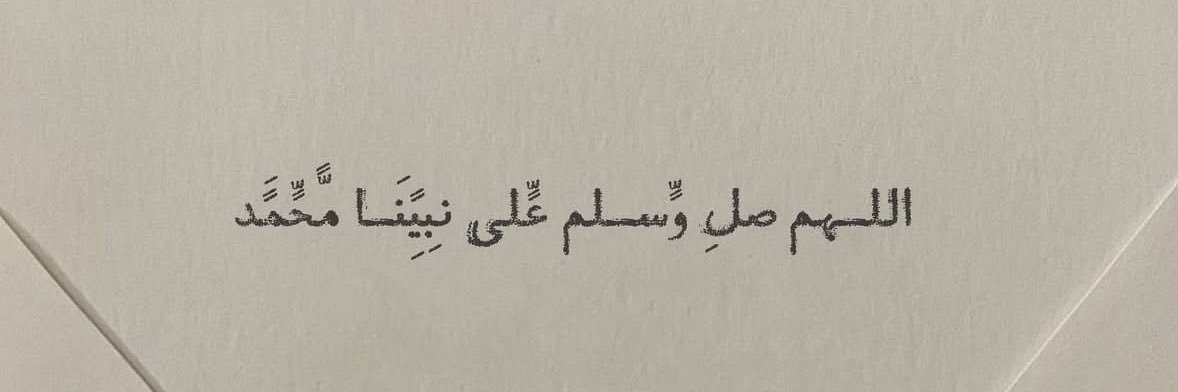 اللـهم صلِ وٍّسـلم عٍّلى نبِيٍَنَـا مًّحٍّمًَد